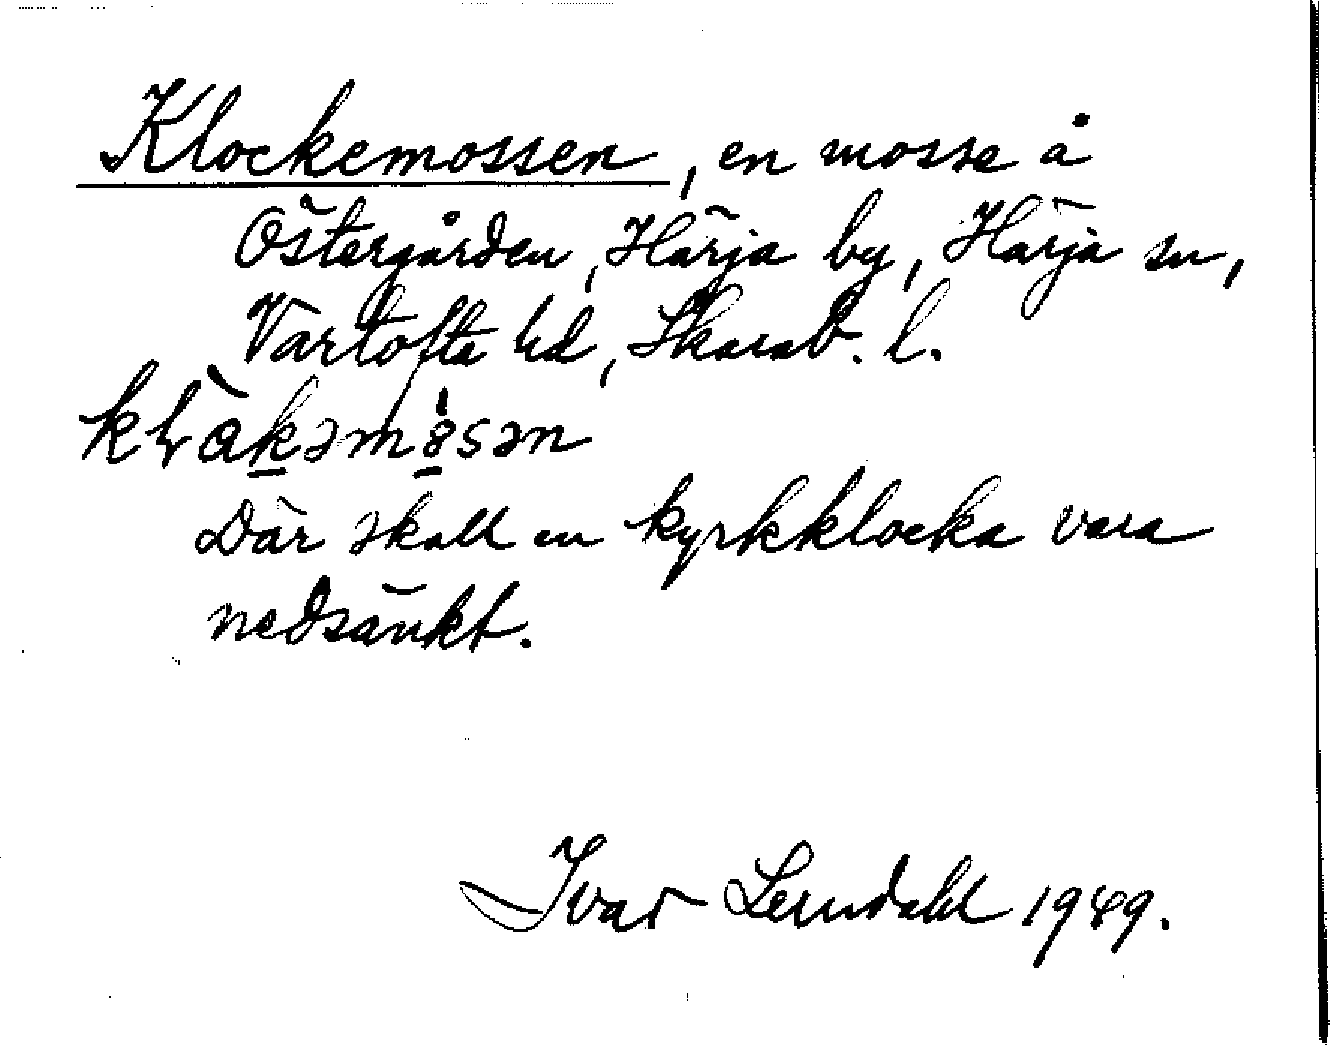 Klockemossen, en mosse å
Östergården, Härja by, Härja sn,
Vartofta hd, Skarab. l.
Där skall en kyrkklocka vara
nedsänkt.
Ivar Lerndahl 1949.